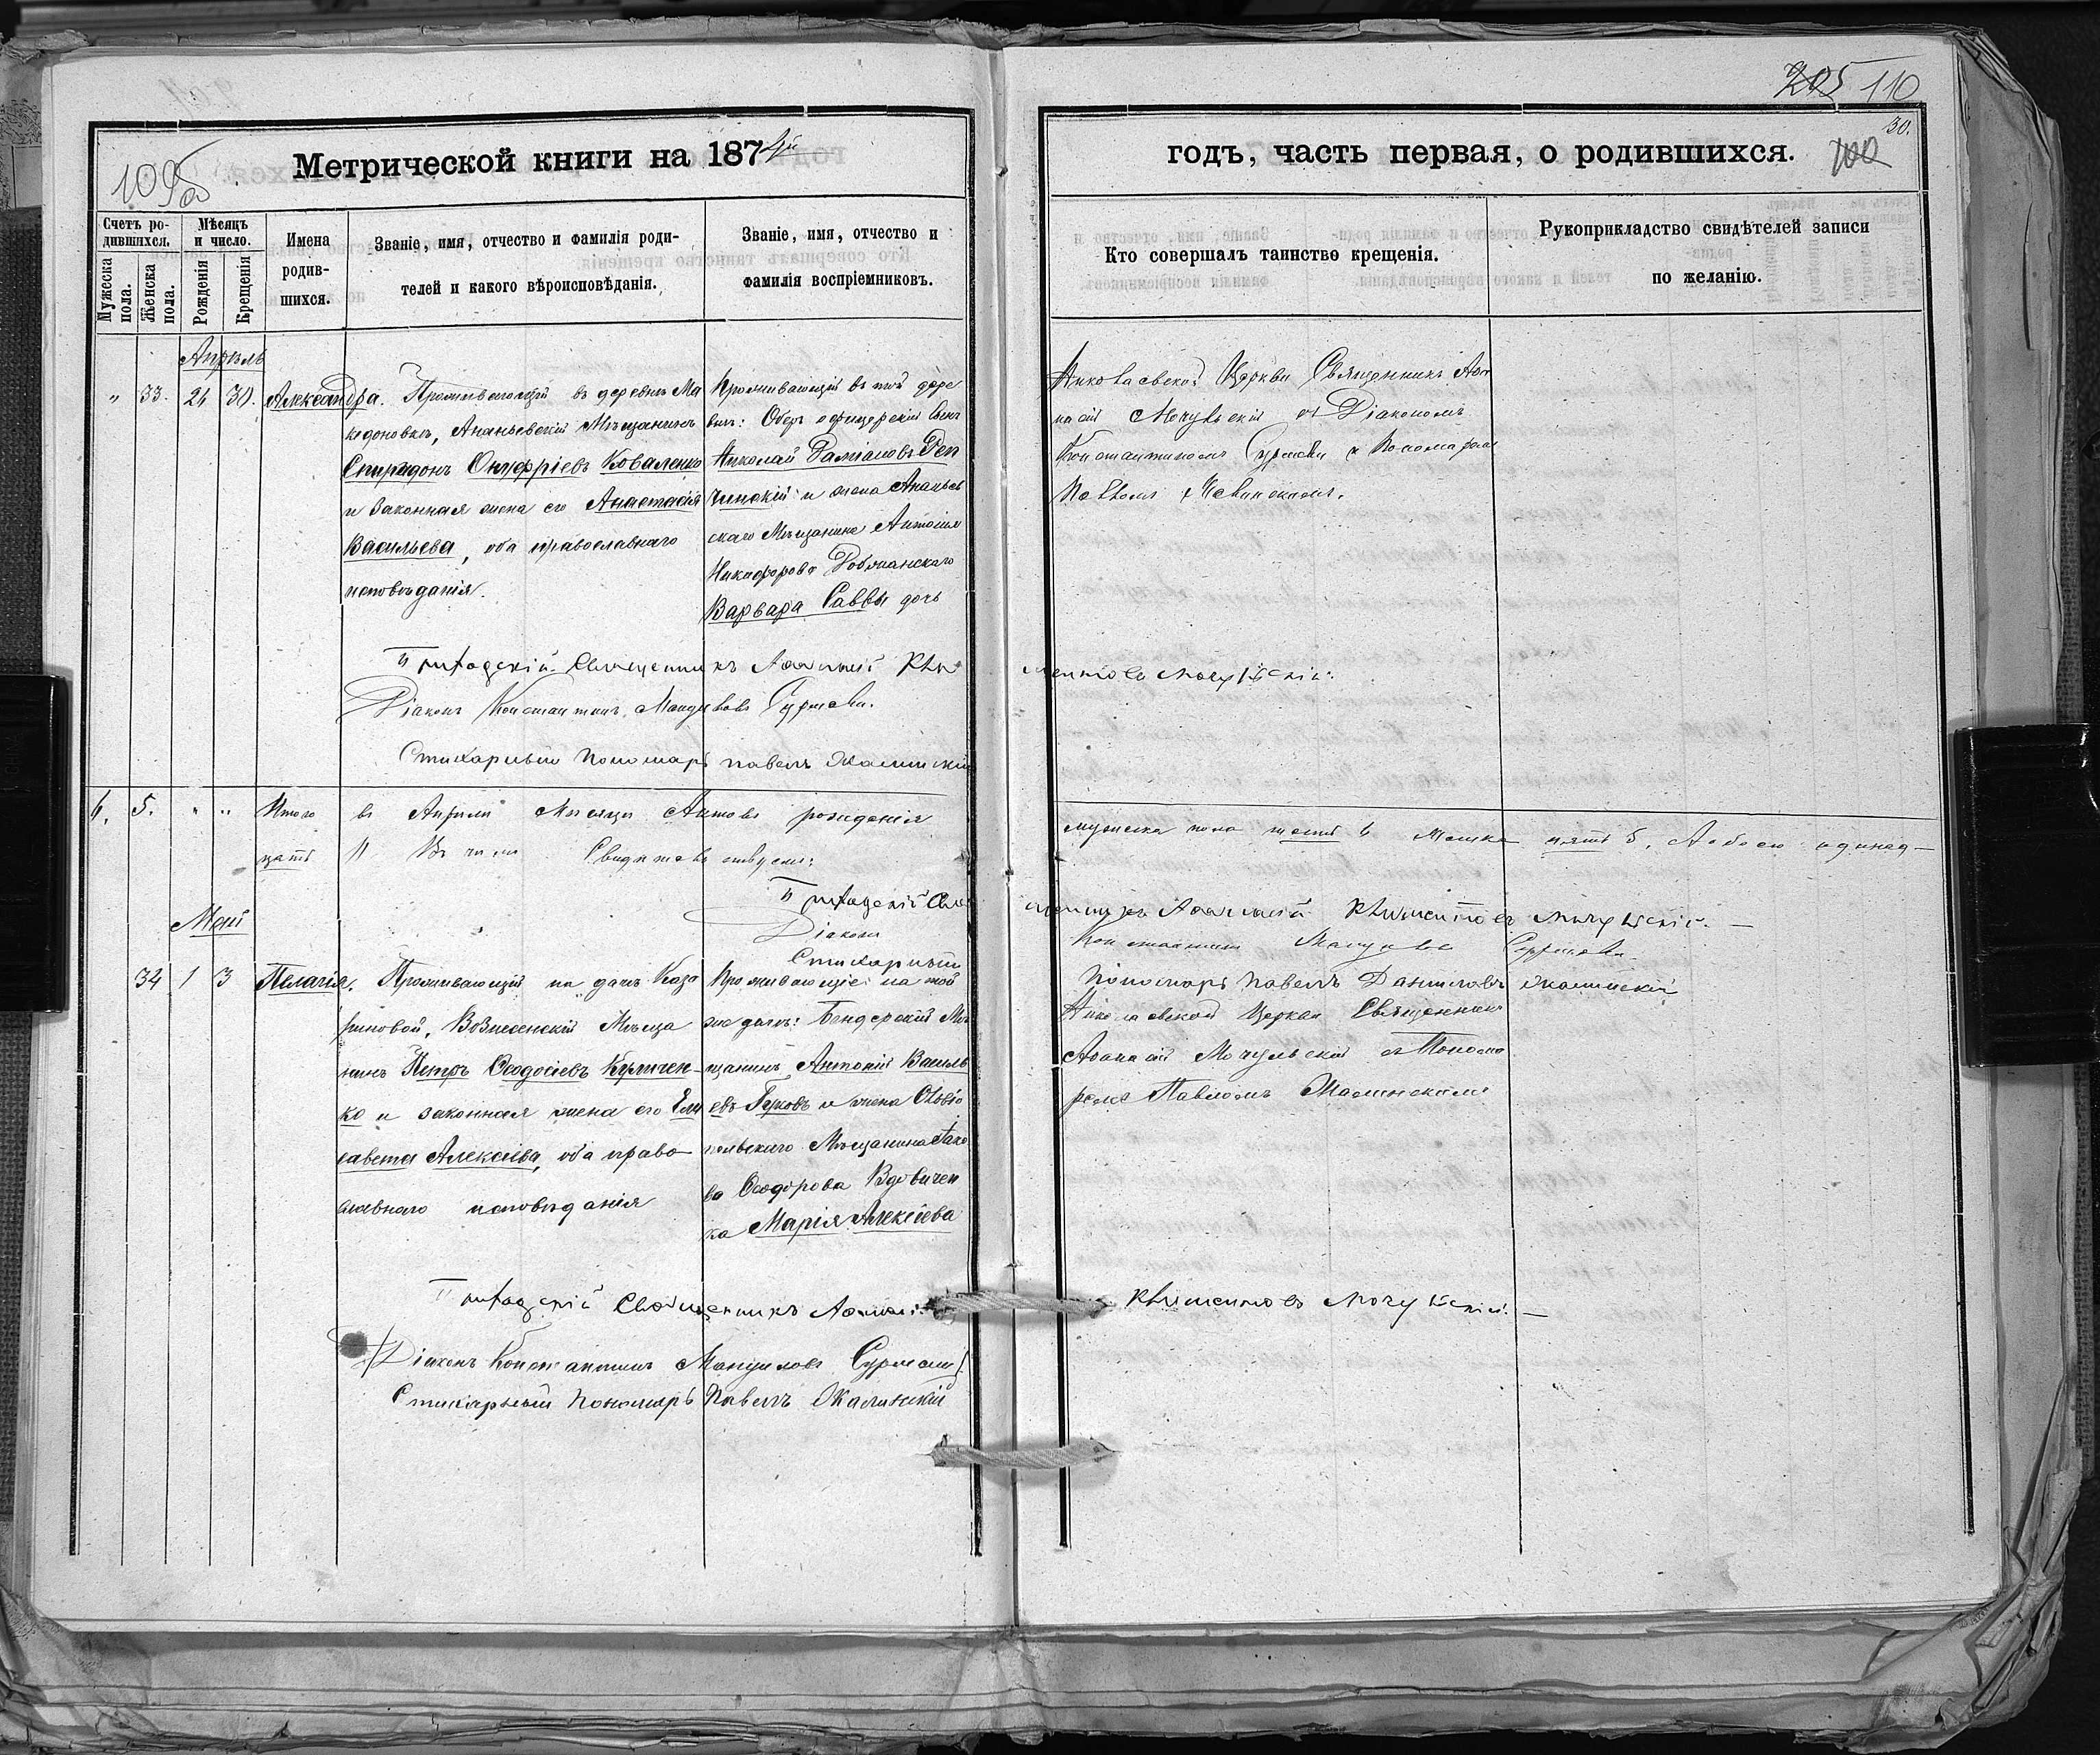 205 110
30.
109об
Метрической книги на 1874й
годъ, часть первая, о родившихся. 100
Счетъ ро-
дившихся.
Мужеска пола.
Женска пола.
Мѣсяцъ
и число.
Рожденія
Крещенія
Имена
родив-
шихся.
Званіе, имя, отчество и фамилія роди-
телей и какого вѣроисповѣданія.
Званіе, имя, отчество и
фамилія воспріемниковъ.
Кто совершалъ таинство крещенія.
Рукоприкладство свидѣтелей записи
по желанію.
Апрѣль
„ 33. 30. Александра.
Проживающій въ деревнѣ Ма
кедоновкѣ, Ананьевскій Мѣщанинъ
Спиридонъ Онуфріевъ Коваленко
и законная жена его Анастасія
Васильева, оба православнаго
исповѣданія.
Проживающій въ той дере
внѣ: Оберъ офицерскій Сынъ
Николай Даміановъ Реп
чинскій и жена Ананьев
скаго Мѣщанина Антонія
Никифорова
Варвара Саввы дочь
Николаевской Церкви Священникъ Аѳа
насій Мочульскій съ Діакономъ
Константиномъ и Пономаремъ
Павломъ
Приходскій Священникъ Аѳанасій Климентовъ Мочульскій.
Діаконъ Константинъ
Стихарный Пономарь Павелъ
6. 5. „ „ Итого въ Апрѣлѣ Мѣсяцѣ Актовъ рожденія
мужеска пола шесть 6 женска пять 5, Обоего одинад-
цать 11
Приходскій Священникъ Аѳанасій Климентовъ Мочульскій. —
Діаконъ Константинъ
Стихарный Пономарь Павелъ Даниловъ
Май
34 1 3 Пелагія.
Проживающій на дачѣ Каза
риновой, Вознесенскій Мѣща
нинъ Петръ Ѳеодосіевъ Кириченко-
ко и законная жена его Ели
савета Алексѣева, оба право
славнаго исповѣданія
Проживающіе на той
же дачѣ: Бендерскій Мѣ
щанинъ Антоній Василь
евъ Гуковъ и жена Овидіо
польскаго Мѣщанина Іако
ва Ѳеодорова Вдовичен
ка Марія Алексѣева
Николаевской Церкви Священникъ
Аѳанасій Мочульскій съ Понома
ремъ Павломъ
Приходскій Священникъ Аѳанасій Климентовъ Мочульскій. —
Діаконъ Константинъ Мануиловъ
Стихарный Пономарь Павелъ